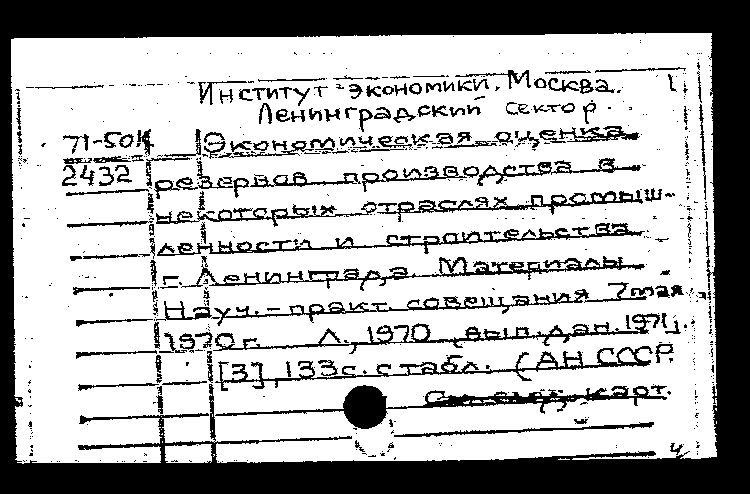 Институт экономики. Москва. 1
Ленинградский сектор.
71-50К Экономическая оценка
2432 резервов производства в
некоторых отраслях промыш-
ленности и строительства
г. Ленинграда. Материалы
Науч.-практ. совещания 7 мая
1970 г. Л., 1970, вып. дан. 1971.
[3], 133 с. с табл. (АН СССР.
См. след. карт.